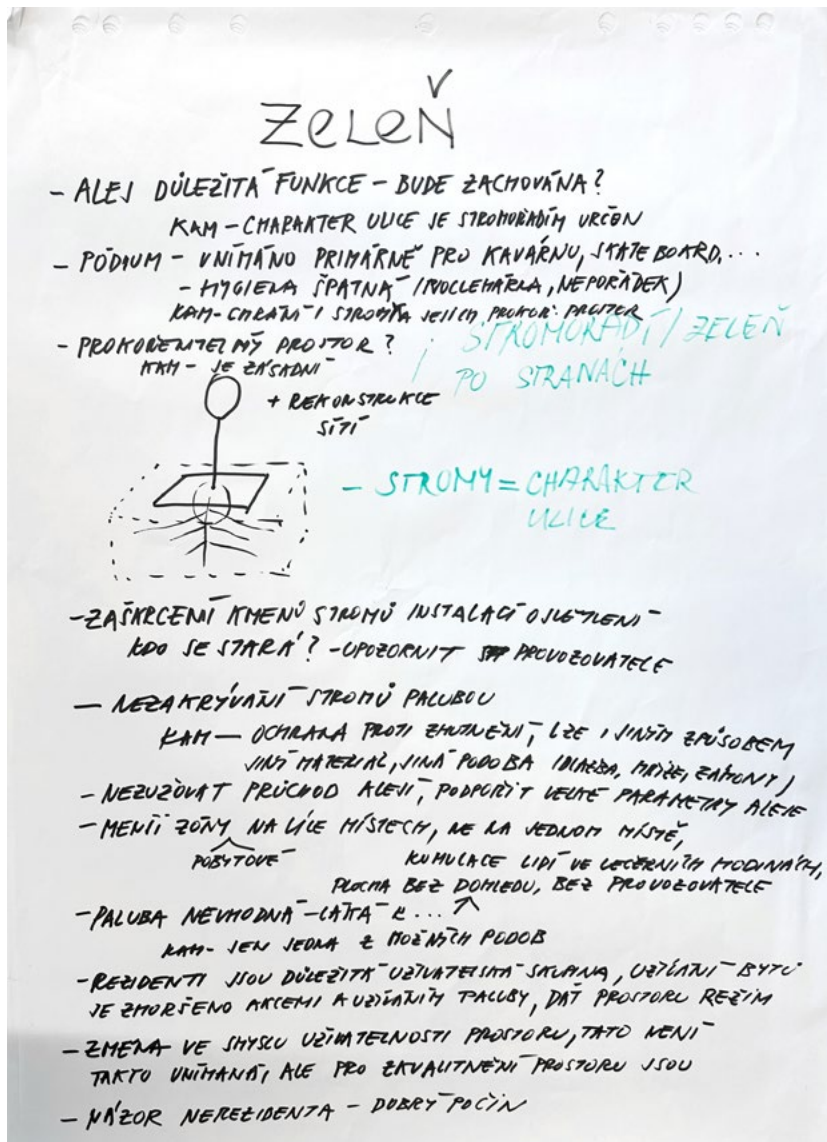 ZELEŇ
- ALEJ DŮLEŽITÁ FUNKCE - BUDE ZACHOVÁNA?
KAM - CHARAKTER ULICE JE STROMOŘADÍM URČEN
- PÓDIUM - VNÍMÁNO PRIMÁRNĚ PRO KAVÁRNU, SKATE BOARD,...
- HYGIENA ŠPATNÁ (NOCLEHÁRNA, NEPOŘÁDEK)
KAM - CHRÁNÍ STROMY A JEJICH PROKOŘ. PROSTOR
- PROKOŘENITELNÝ PROSTOR?
KAM - JE ZÁSADNÍ
STROMOŘADÍ/ZELEŇ
PO STRANÁCH
+ REKONSTRUKCE
SÍTÍ
- STROMY = CHARAKTER
ULICE
- ZAŠKRCENÍ KMENŮ STROMŮ INSTALACÍ OSVĚTLENÍ
KDO SE STARÁ? - UPOZORNIT PROVOZOVATELE
- NEZAKRÝVÁNÍ STROMŮ PALUBOU
KAM - OCHRANA PROTI ZHUTNĚNÍ, LZE I JINÝM ZPŮSOBEM
JINÝ MATERIÁL, JINÁ PODOBA (DLAŽBA, MŘÍŽE, ZÁHONY)
- NEZUŽOVAT PRŮCHOD ALEJÍ, PODPOŘIT VELKÉ PARAMETRY ALEJE
- MENŠÍ ZÓNY NA VÍCE MÍSTECH, NE NA JEDNOM MÍSTĚ,
POBYTOVÉ
KUMULACE LIDÍ VE VEČERNÍCH HODINÁCH,
PLOCHA BEZ DOHLEDU, BEZ PROVOZOVATELE
- PALUBA NEVHODNÁ - LÁKÁ K...
KAM - JEN JEDNA Z MOŽNÝCH PODOB
- REZIDENTI JSOU DŮLEŽITÁ UŽIVATELSKÁ SKUPINA, UŽÍVÁNÍ BYTŮ
JE ZHORŠENO AKCEMI A UŽÍVÁNÍM PALUBY, DÁT PROSTORU REŽIM
- ZMĚNA VE SMYSLU UŽIVATELNOSTI PROSTORU, TATO NENÍ
TAKTO VNÍMANÁ, ALE PRO ZKVALITNĚNÍ PROSTORU JSOU
- NÁZOR NEREZIDENTA - DOBRÝ POČIN